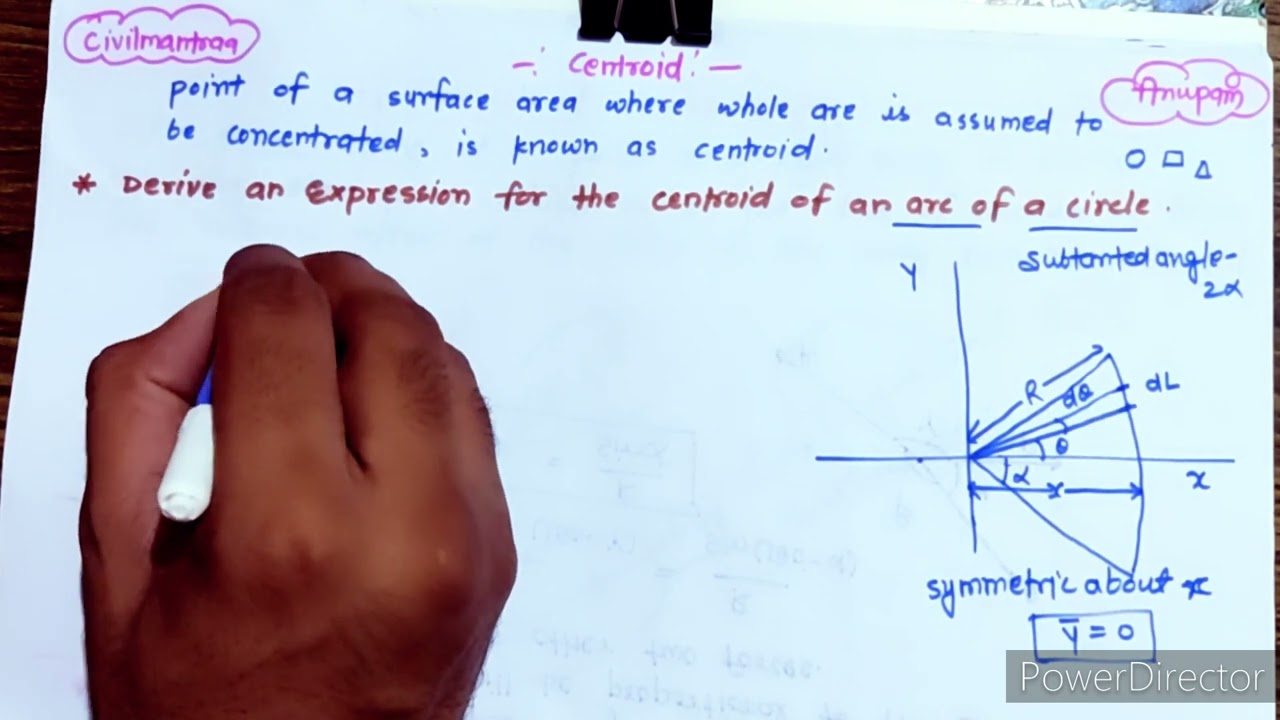 Civilmantraa
-: Centroid: -
Anupam
point of a surface area where whole are is assumed to
be concentrated, is known as centroid.
* Derive an Expression for the centroid of an arc of a circle.
Subtanted angle-
2α
Y
R
dθ
dL
θ
α
x
x
symmetric about x
Y̅ = 0
PowerDirector